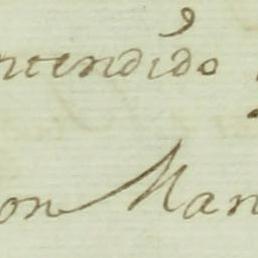 ntendido
on Man